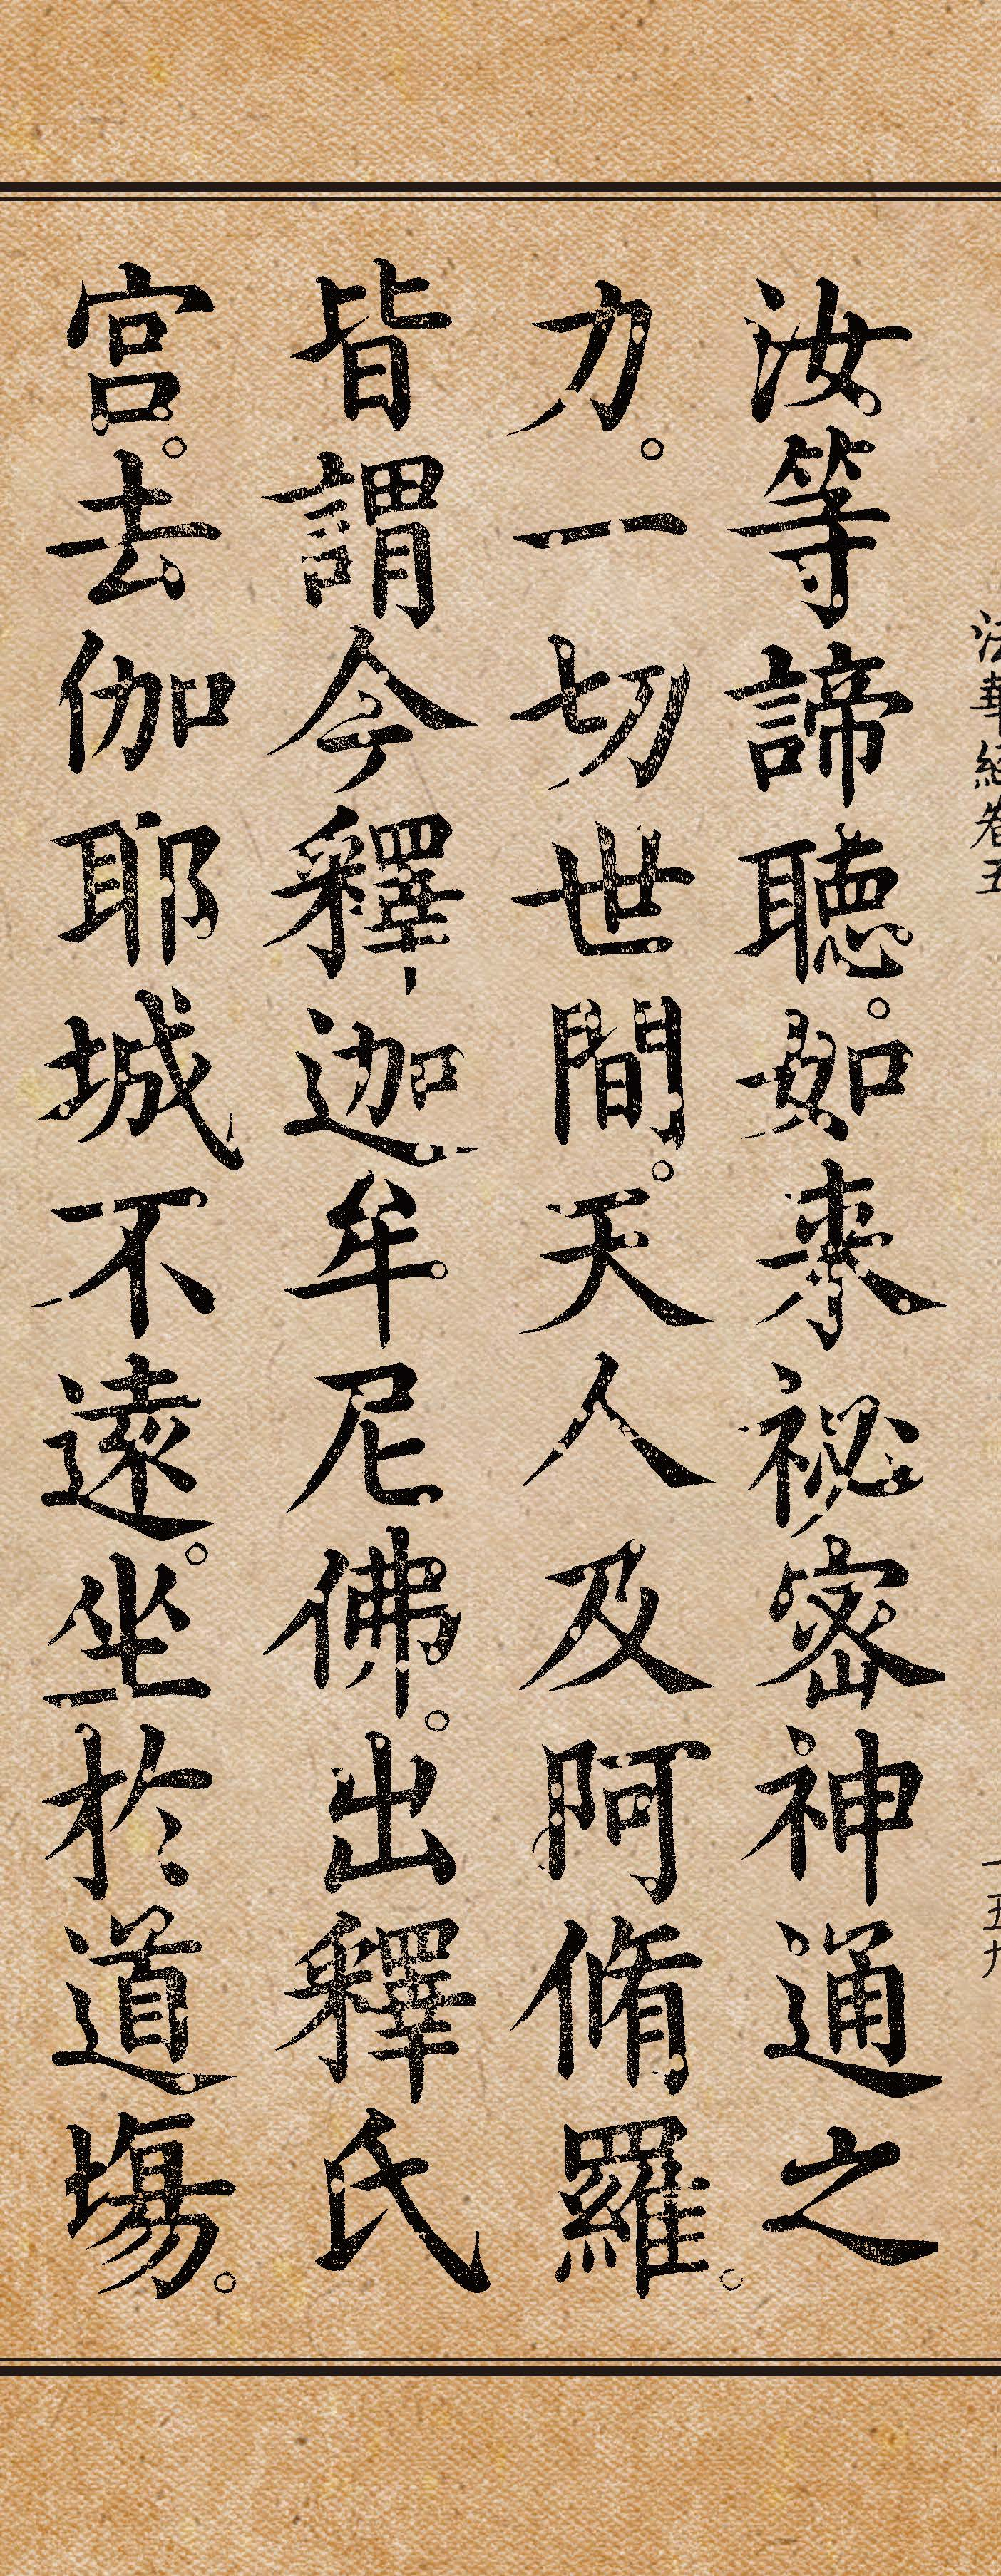 法華經卷五
一五九
汝等諦聽。如来祕密神通之
力。一切世間。天人及阿脩羅。
皆謂今釋迦牟尼佛。出釋氏
宮。去伽耶城不遠。坐於道場。